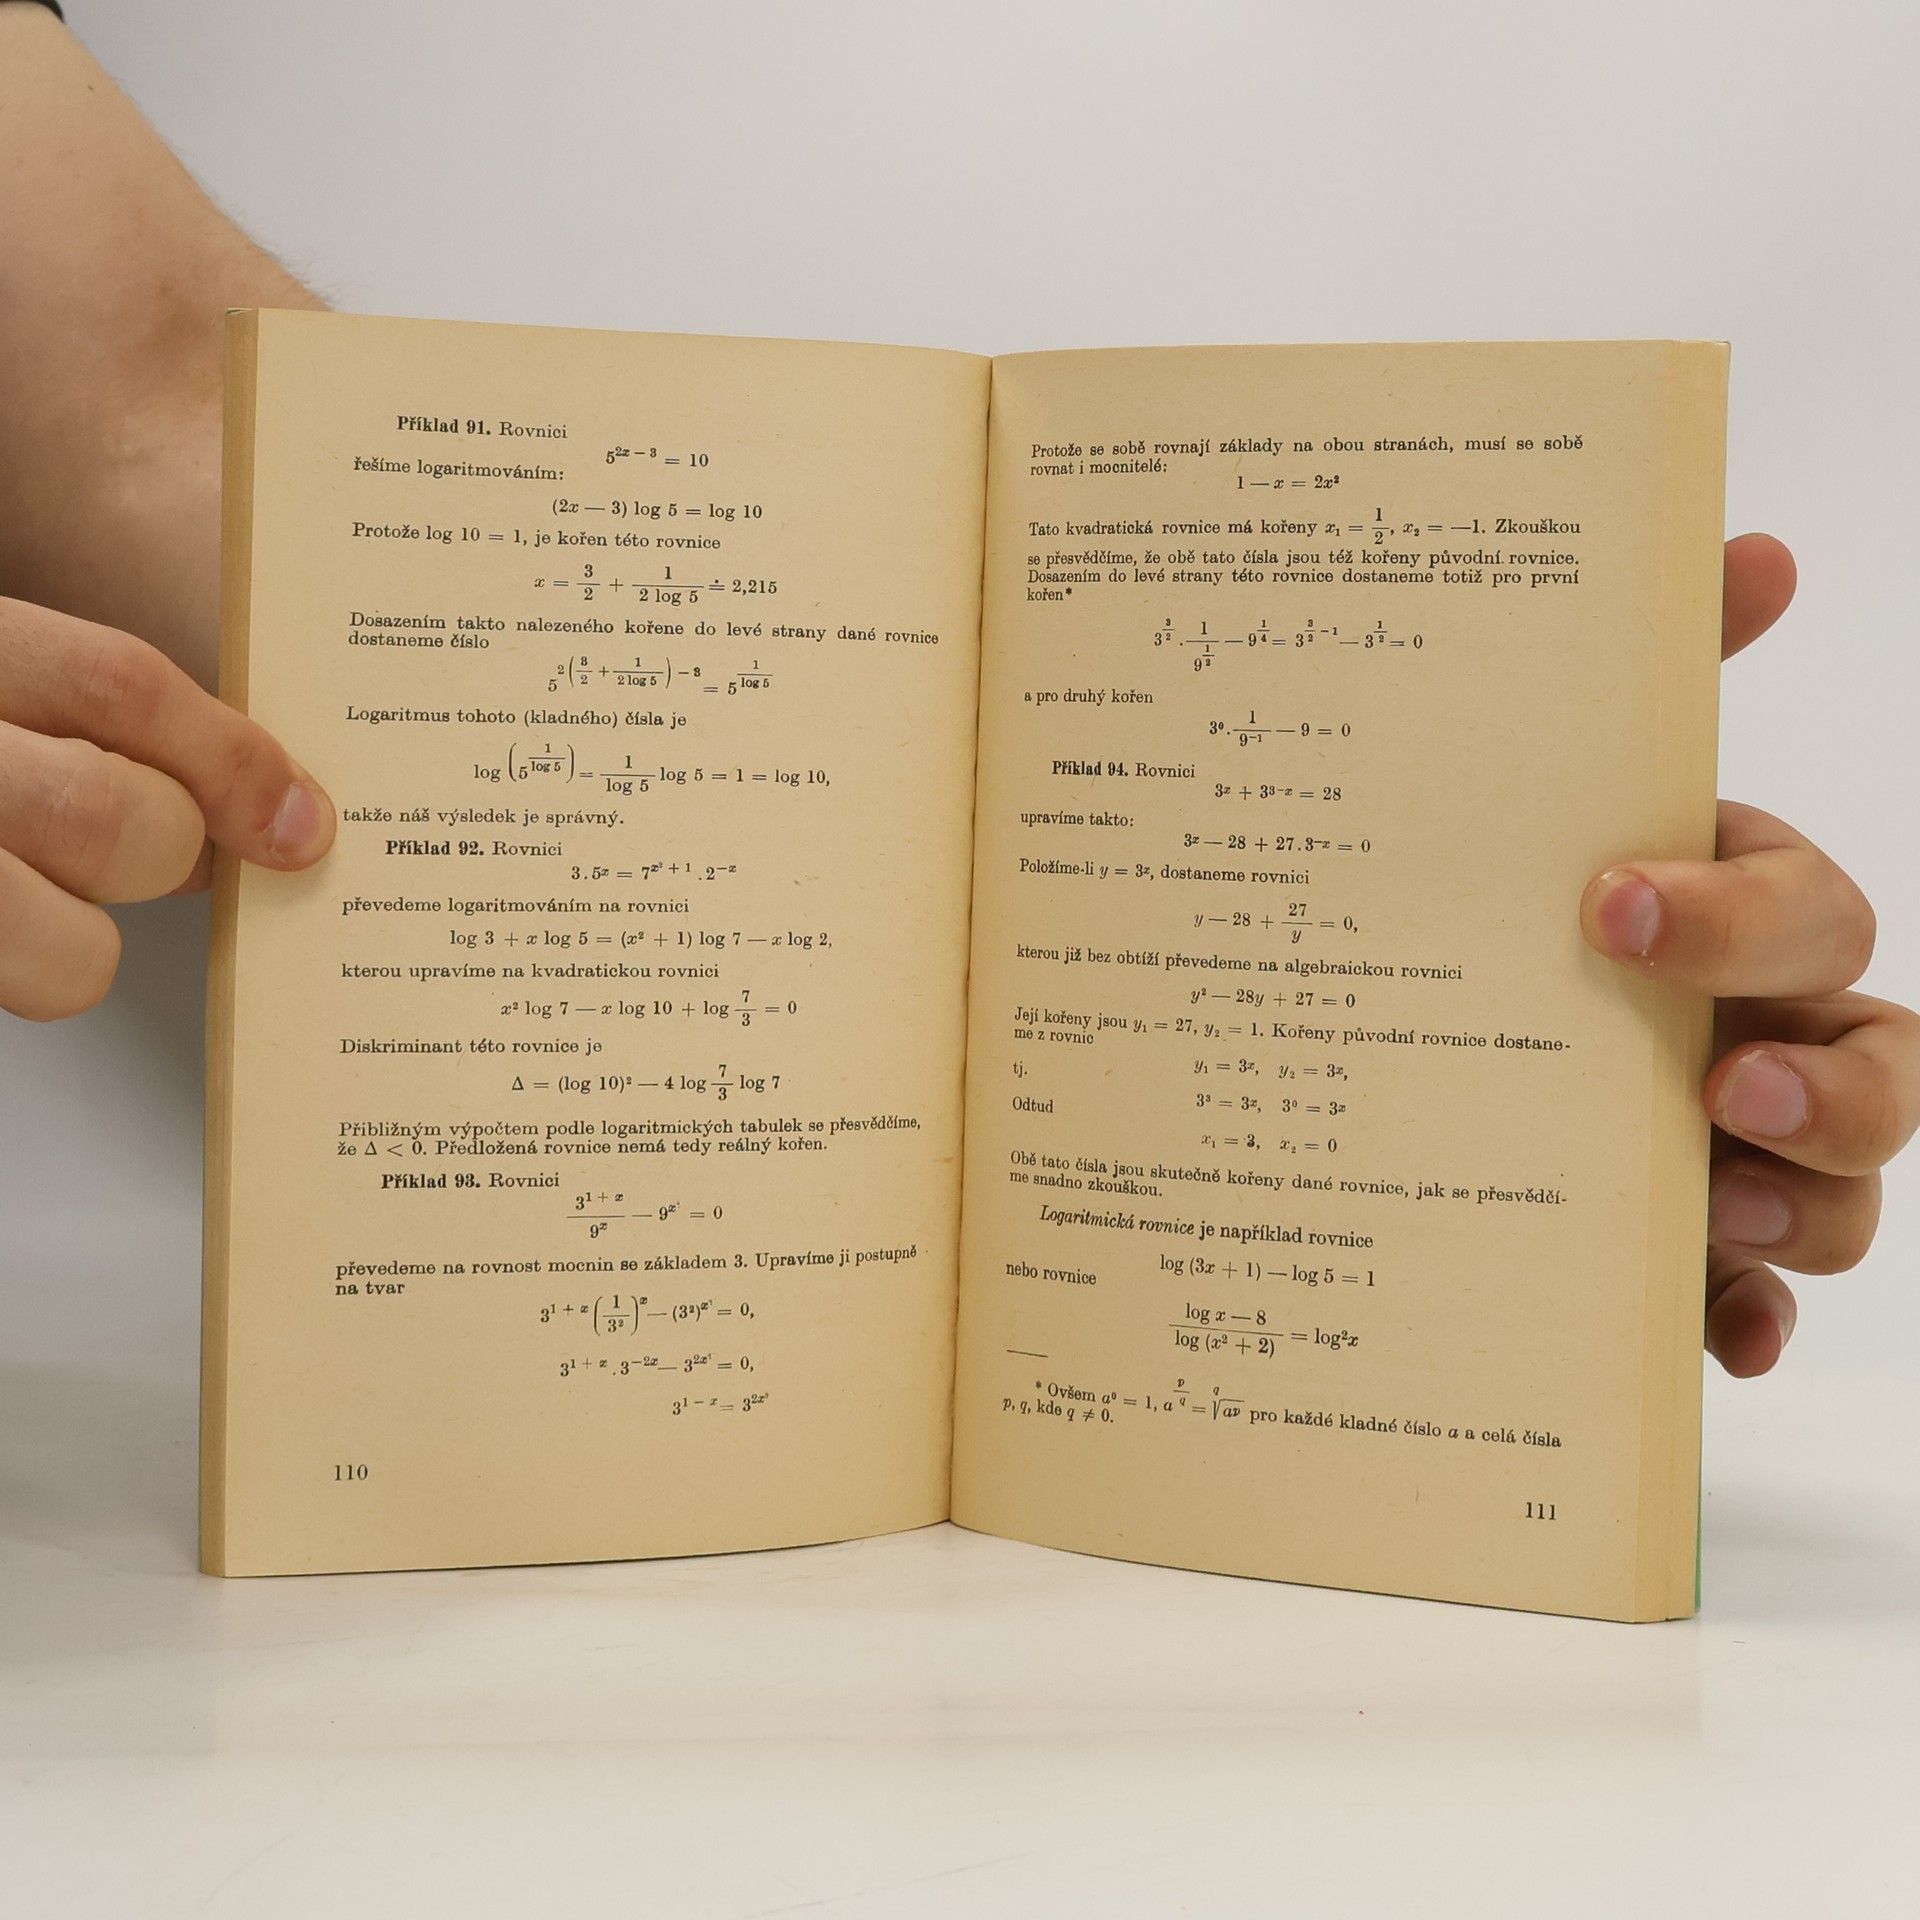 Příklad 91. Rovnici
5^{2x − 3} = 10
řešíme logaritmováním:
(2x — 3) log 5 = log 10
Protože log 10 = 1, je kořen této rovnice
x = 3/2 + 1/(2 log 5) ≐ 2,215
Dosazením takto nalezeného kořene do levé strany dané rovnice
dostaneme číslo
5^{2(3/2 + 1/(2 log 5)) − 3} = 5^{1/log 5}
Logaritmus tohoto (kladného) čísla je
log (5^{1/log 5}) = 1/log 5 log 5 = 1 = log 10,
takže náš výsledek je správný.
Příklad 92. Rovnici
3 . 5^x = 7^{x² + 1} . 2^{−x}
převedeme logaritmováním na rovnici
log 3 + x log 5 = (x² + 1) log 7 — x log 2,
kterou upravíme na kvadratickou rovnici
x² log 7 — x log 10 + log 7/3 = 0
Diskriminant této rovnice je
Δ = (log 10)² — 4 log 7/3 log 7
Přibližným výpočtem podle logaritmických tabulek se přesvědčíme,
že Δ < 0. Předložená rovnice nemá tedy reálný kořen.
Příklad 93. Rovnici
3^{1 + x}/9^x — 9^{x²} = 0
převedeme na rovnost mocnin se základem 3. Upravíme ji postupně
na tvar
3^{1 + x} (1/3²)^x — (3²)^{x²} = 0,
3^{1 + x} . 3^{−2x} — 3^{2x²} = 0,
3^{1 − x} = 3^{2x²}
110
Protože se sobě rovnají základy na obou stranách, musí se sobě
rovnat i mocnitelé:
1 — x = 2x²
Tato kvadratická rovnice má kořeny x₁ = 1/2, x₂ = —1. Zkouškou
se přesvědčíme, že obě tato čísla jsou též kořeny původní rovnice.
Dosazením do levé strany této rovnice dostaneme totiž pro první
kořen*
3^{3/2} . 1/9^{1/2} — 9^{1/4} = 3^{3/2 − 1} — 3^{1/2} = 0
a pro druhý kořen
3⁰ . 1/9^{−1} — 9 = 0
Příklad 94. Rovnici
3^x + 3^{3−x} = 28
upravíme takto:
3^x — 28 + 27 . 3^{−x} = 0
Položíme-li y = 3^x, dostaneme rovnici
y — 28 + 27/y = 0,
kterou již bez obtíží převedeme na algebraickou rovnici
y² — 28y + 27 = 0
Její kořeny jsou y₁ = 27, y₂ = 1. Kořeny původní rovnice dostane-
me z rovnic
y₁ = 3^x, y₂ = 3^x,
tj.
3³ = 3^x, 3⁰ = 3^x
Odtud
x₁ = 3, x₂ = 0
Obě tato čísla jsou skutečně kořeny dané rovnice, jak se přesvědčí-
me snadno zkouškou.
Logaritmická rovnice je například rovnice
log (3x + 1) — log 5 = 1
nebo rovnice
(log x — 8)/(log (x² + 2)) = log²x
* Ovšem a⁰ = 1, a^{p/q} = \sqrt[q]{a^p} pro každé kladné číslo a a celá čísla
p, q, kde q ≠ 0.
111